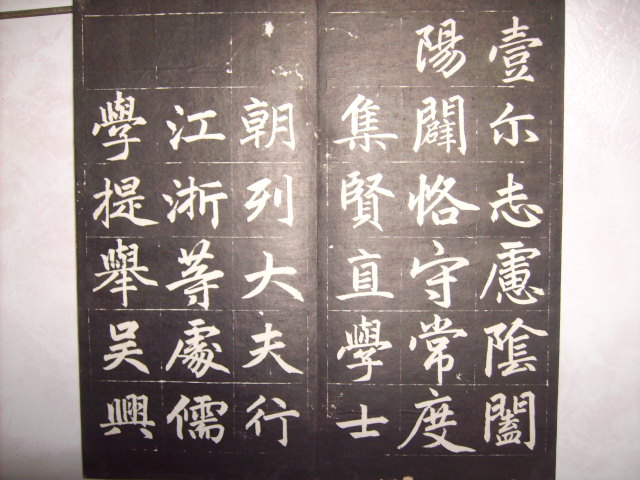 壹尒志慮陰闔
陽闢恪守常度
集賢直學士
朝列大夫行
江浙等處儒
學提舉吴興